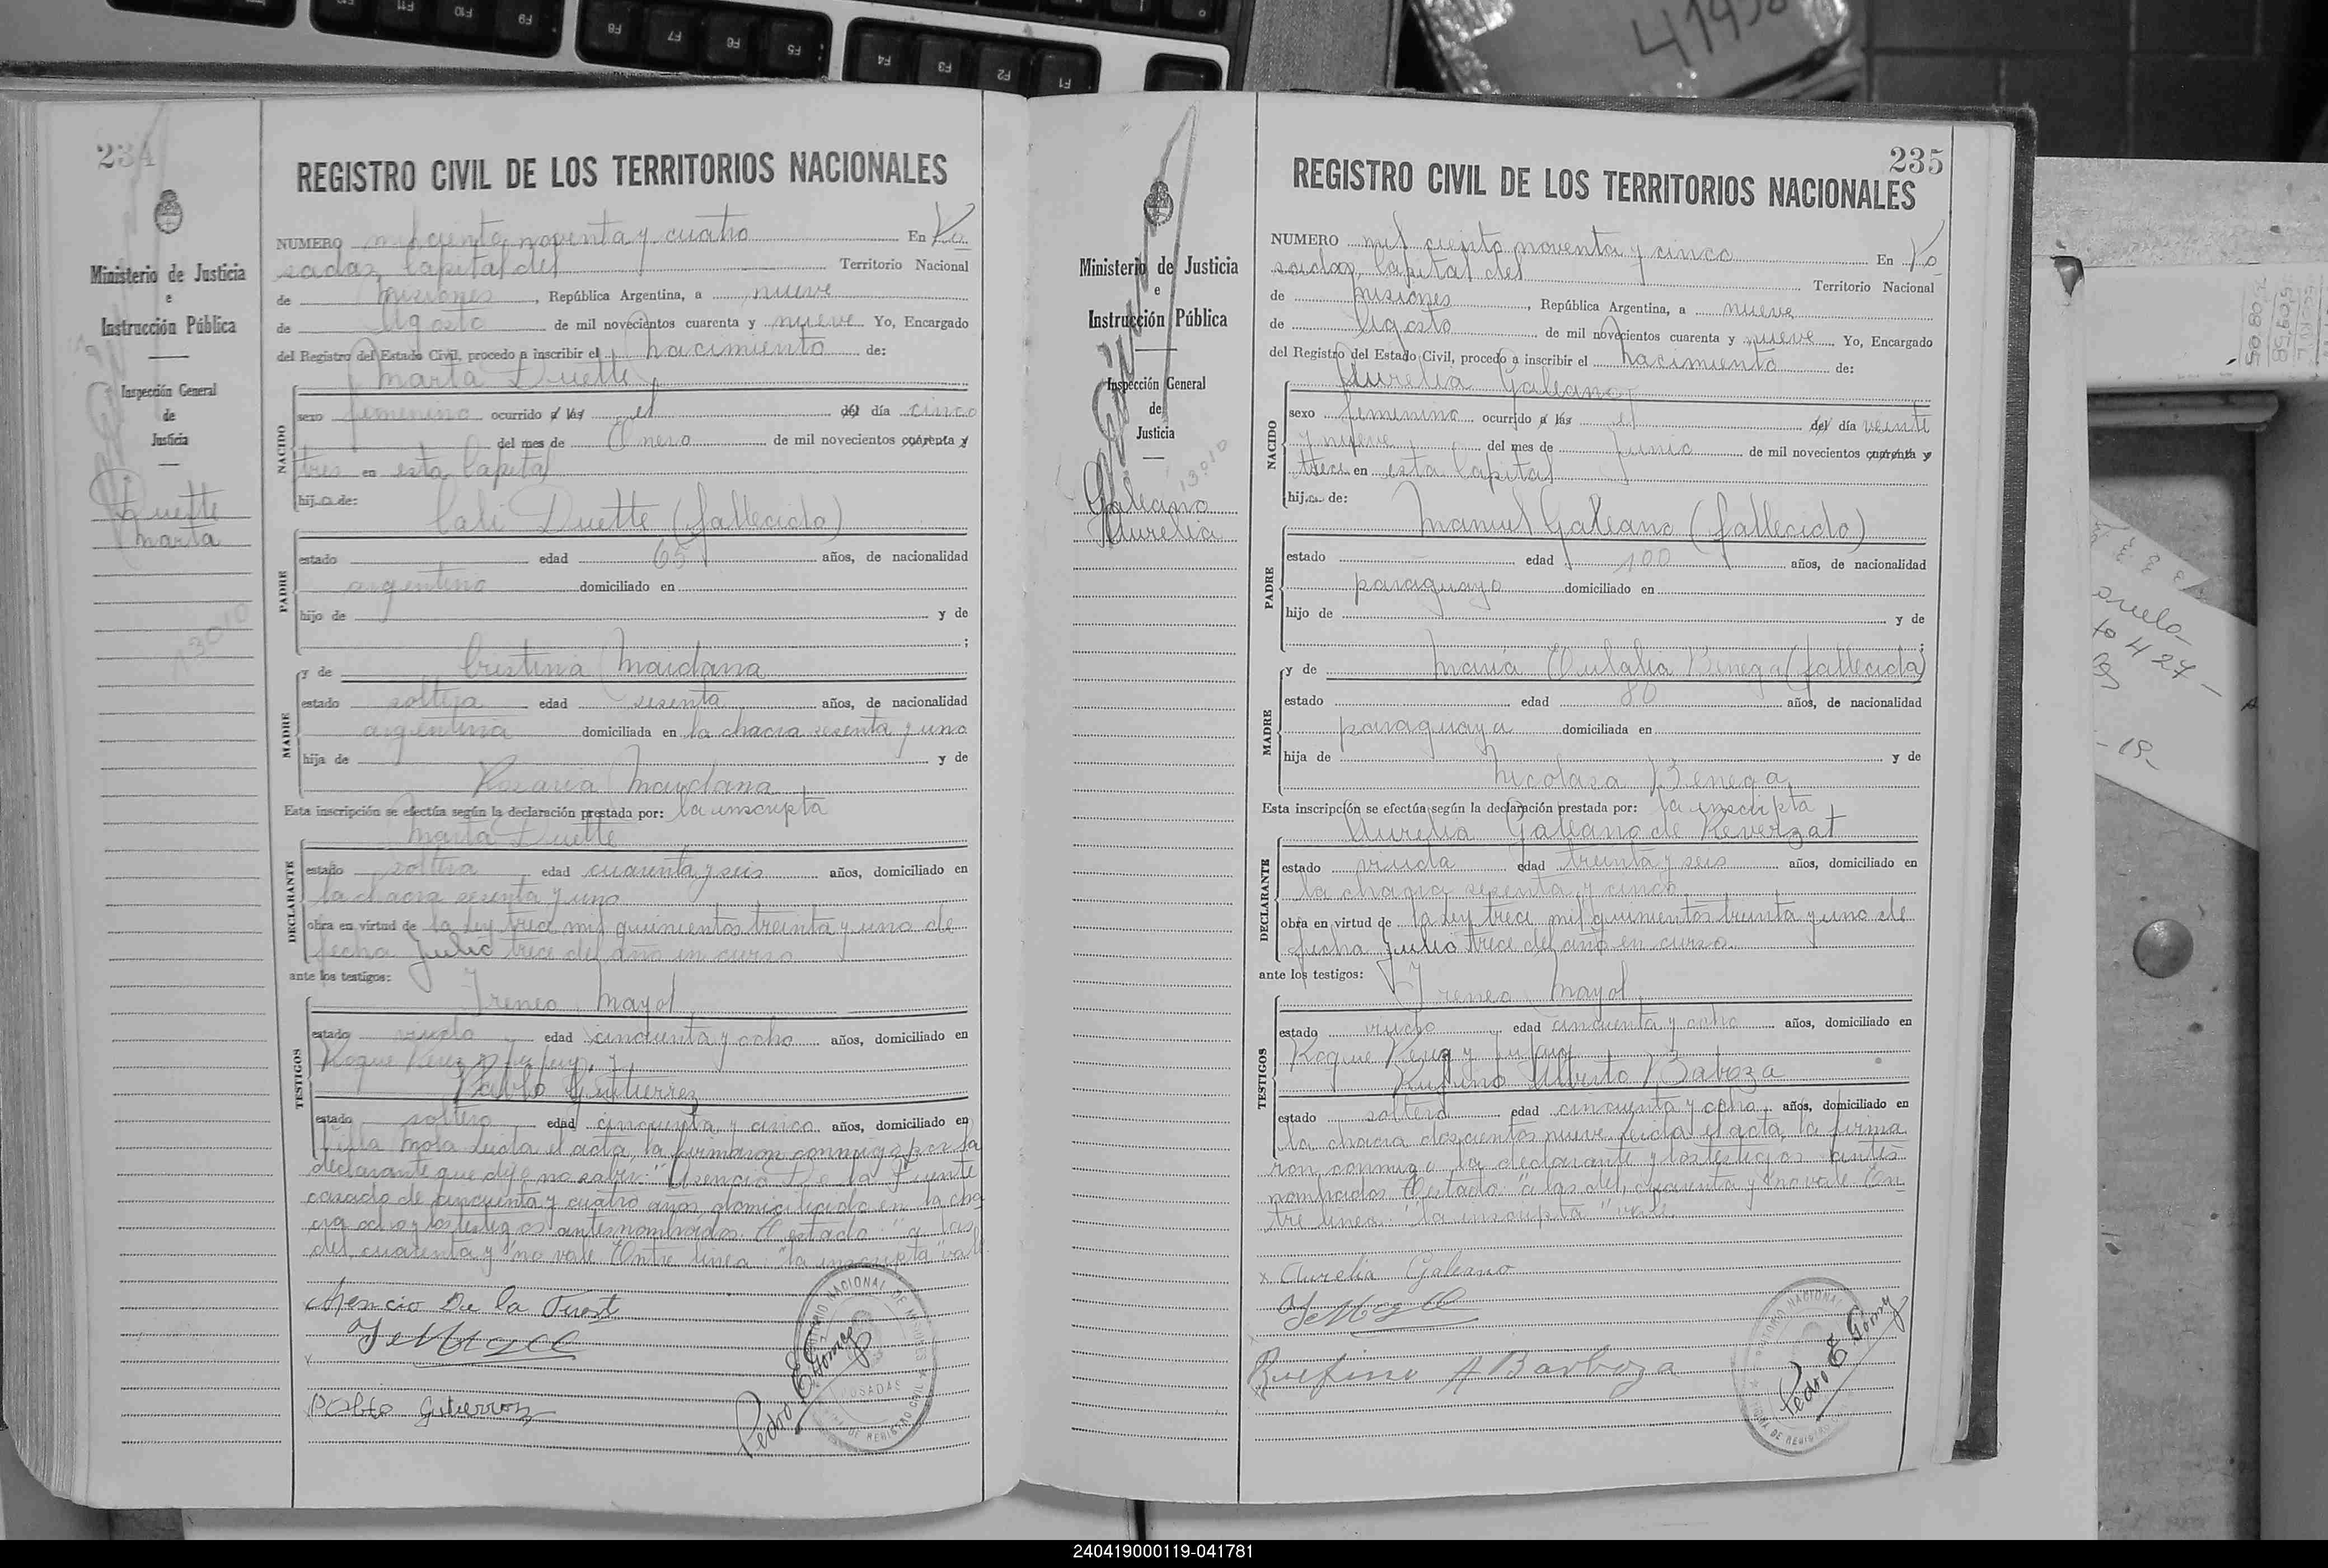 41950
234
REGISTRO CIVIL DE LOS TERRITORIOS NACIONALES
NUMERO mil ciento noventa y cuatro En Po
sadas Capital del Territorio Nacional
de Misiones, República Argentina, a nueve
de Agosto de mil novecientos cuarenta y nueve Yo, Encargado
del Registro del Estado Civil, procedo a inscribir el nacimiento de:
Marta Duette
NACIDO
sexo femenino ocurrido a las el del día cinco
del mes de Enero de mil novecientos cuarenta y
tres en esta Capital
hija de:
Cali Duette (fallecido)
PADRE
estado edad 65 años, de nacionalidad
argentino domiciliado en
hijo de y de
;
MADRE
y de Cristina Maidana
estado soltera edad sesenta años, de nacionalidad
argentina domiciliada en la chacra sesenta y uno
hija de y de
Rosaria Maidana
Esta inscripción se efectúa según la declaración prestada por: la inscripta
Marta Duette
DECLARANTE
estado soltera edad cuarenta y seis años, domiciliado en
la chacra sesenta y uno
obra en virtud de la Ley trece mil quinientos treinta y uno de
fecha Julio trece del año en curso
ante los testigos:
Ireneo Mayol
TESTIGOS
estado viudo edad cincuenta y ocho años, domiciliado en
Roque Perez y Jujuy, y
Pablo Gutierrez
estado soltero edad cincuenta y cinco años, domiciliado en
Villa Mola Leida el acta, la firmaron conmigo por la
declarante que dijo no saber: Asencio De la Fuente
casado de cincuenta y cuatro años domiciliado en la cha
cra ocho y los testigos antesnombrados. Testado: "a las
del, cuarenta y" no vale. Entre linea: "la inscripta" vale
Asencio De la Fuente
Pablo Gutierrez
Pedro E. Gomez
Ministerio de Justicia
e
Instrucción Pública
Inspección General
de
Justicia
Duette
Marta
13010
235
REGISTRO CIVIL DE LOS TERRITORIOS NACIONALES
NUMERO mil ciento noventa y cinco En Po
sadas Capital del Territorio Nacional
de Misiones, República Argentina, a nueve
de Agosto de mil novecientos cuarenta y nueve Yo, Encargado
del Registro del Estado Civil, procedo a inscribir el nacimiento de:
Aurelia Galeano
NACIDO
sexo femenino ocurrido a las el del día veinti
y nueve del mes de Junio de mil novecientos cuarenta y
trece en esta Capital
hija de:
Manuel Galeano (fallecido)
PADRE
estado edad 100 años, de nacionalidad
paraguayo domiciliado en
hijo de y de
;
MADRE
y de María Eulalia Benega (fallecida)
estado edad 80 años, de nacionalidad
paraguaya domiciliada en
hija de y de
Nicolasa Benega
Esta inscripción se efectúa según la declaración prestada por: la inscripta
Aurelia Galeano de Reverzat
DECLARANTE
estado viuda edad treinta y seis años, domiciliado en
la chacra sesenta y cinco
obra en virtud de la Ley trece mil quinientos treinta y uno de
fecha Julio trece del año en curso
ante los testigos:
Ireneo Mayol
TESTIGOS
estado viudo edad cincuenta y ocho años, domiciliado en
Roque Perez y Jujuy
Rufino Alberto Baboza
estado soltero edad cincuenta y ocho años, domiciliado en
la chacra doscientos nueve. Leida el acta, la firma
ron conmigo la declarante y los testigos antes
nombrados Testado: "a las del, cuarenta y" no vale. En
tre linea: "la inscripta" vale.
x Aurelia Galeano
Rufino A Barboza
Pedro E. Gomez
Ministerio de Justicia
e
Instrucción Pública
Inspección General
de
Justicia
Galeano
Aurelia
13010
240419000119-041781